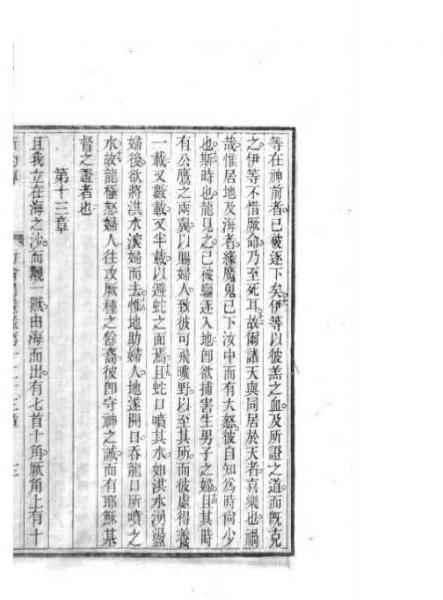 等在神前者已被逐下矣伊等以彼羔之血及所證之道而既克
之伊等不惜厥命乃至死耳故爾諸天與同居於天者喜樂也禍
哉惟居地及海者緣魔鬼已下汝中而有大怒彼自知為時尚少
也斯時也龍見之已被驅逐入地卽欲捕害生男子之婦且其時
有公鷹之兩翼以賜婦人致彼可飛曠野以至其所而彼處得養
一載又數載又半載以避蛇之面焉且蛇口噴其水如洪水湧溫
婦後欲將洪水滚婦而去惟地助婦人地遂開口吞龍口所噴之
水故龍極怒婦人往攻厥種之餘裔彼卽守神之誡而有耶穌基
督之證者也
第十三章
且我立在海之沙而觀一獸由海而出有七首十角厥角上有十